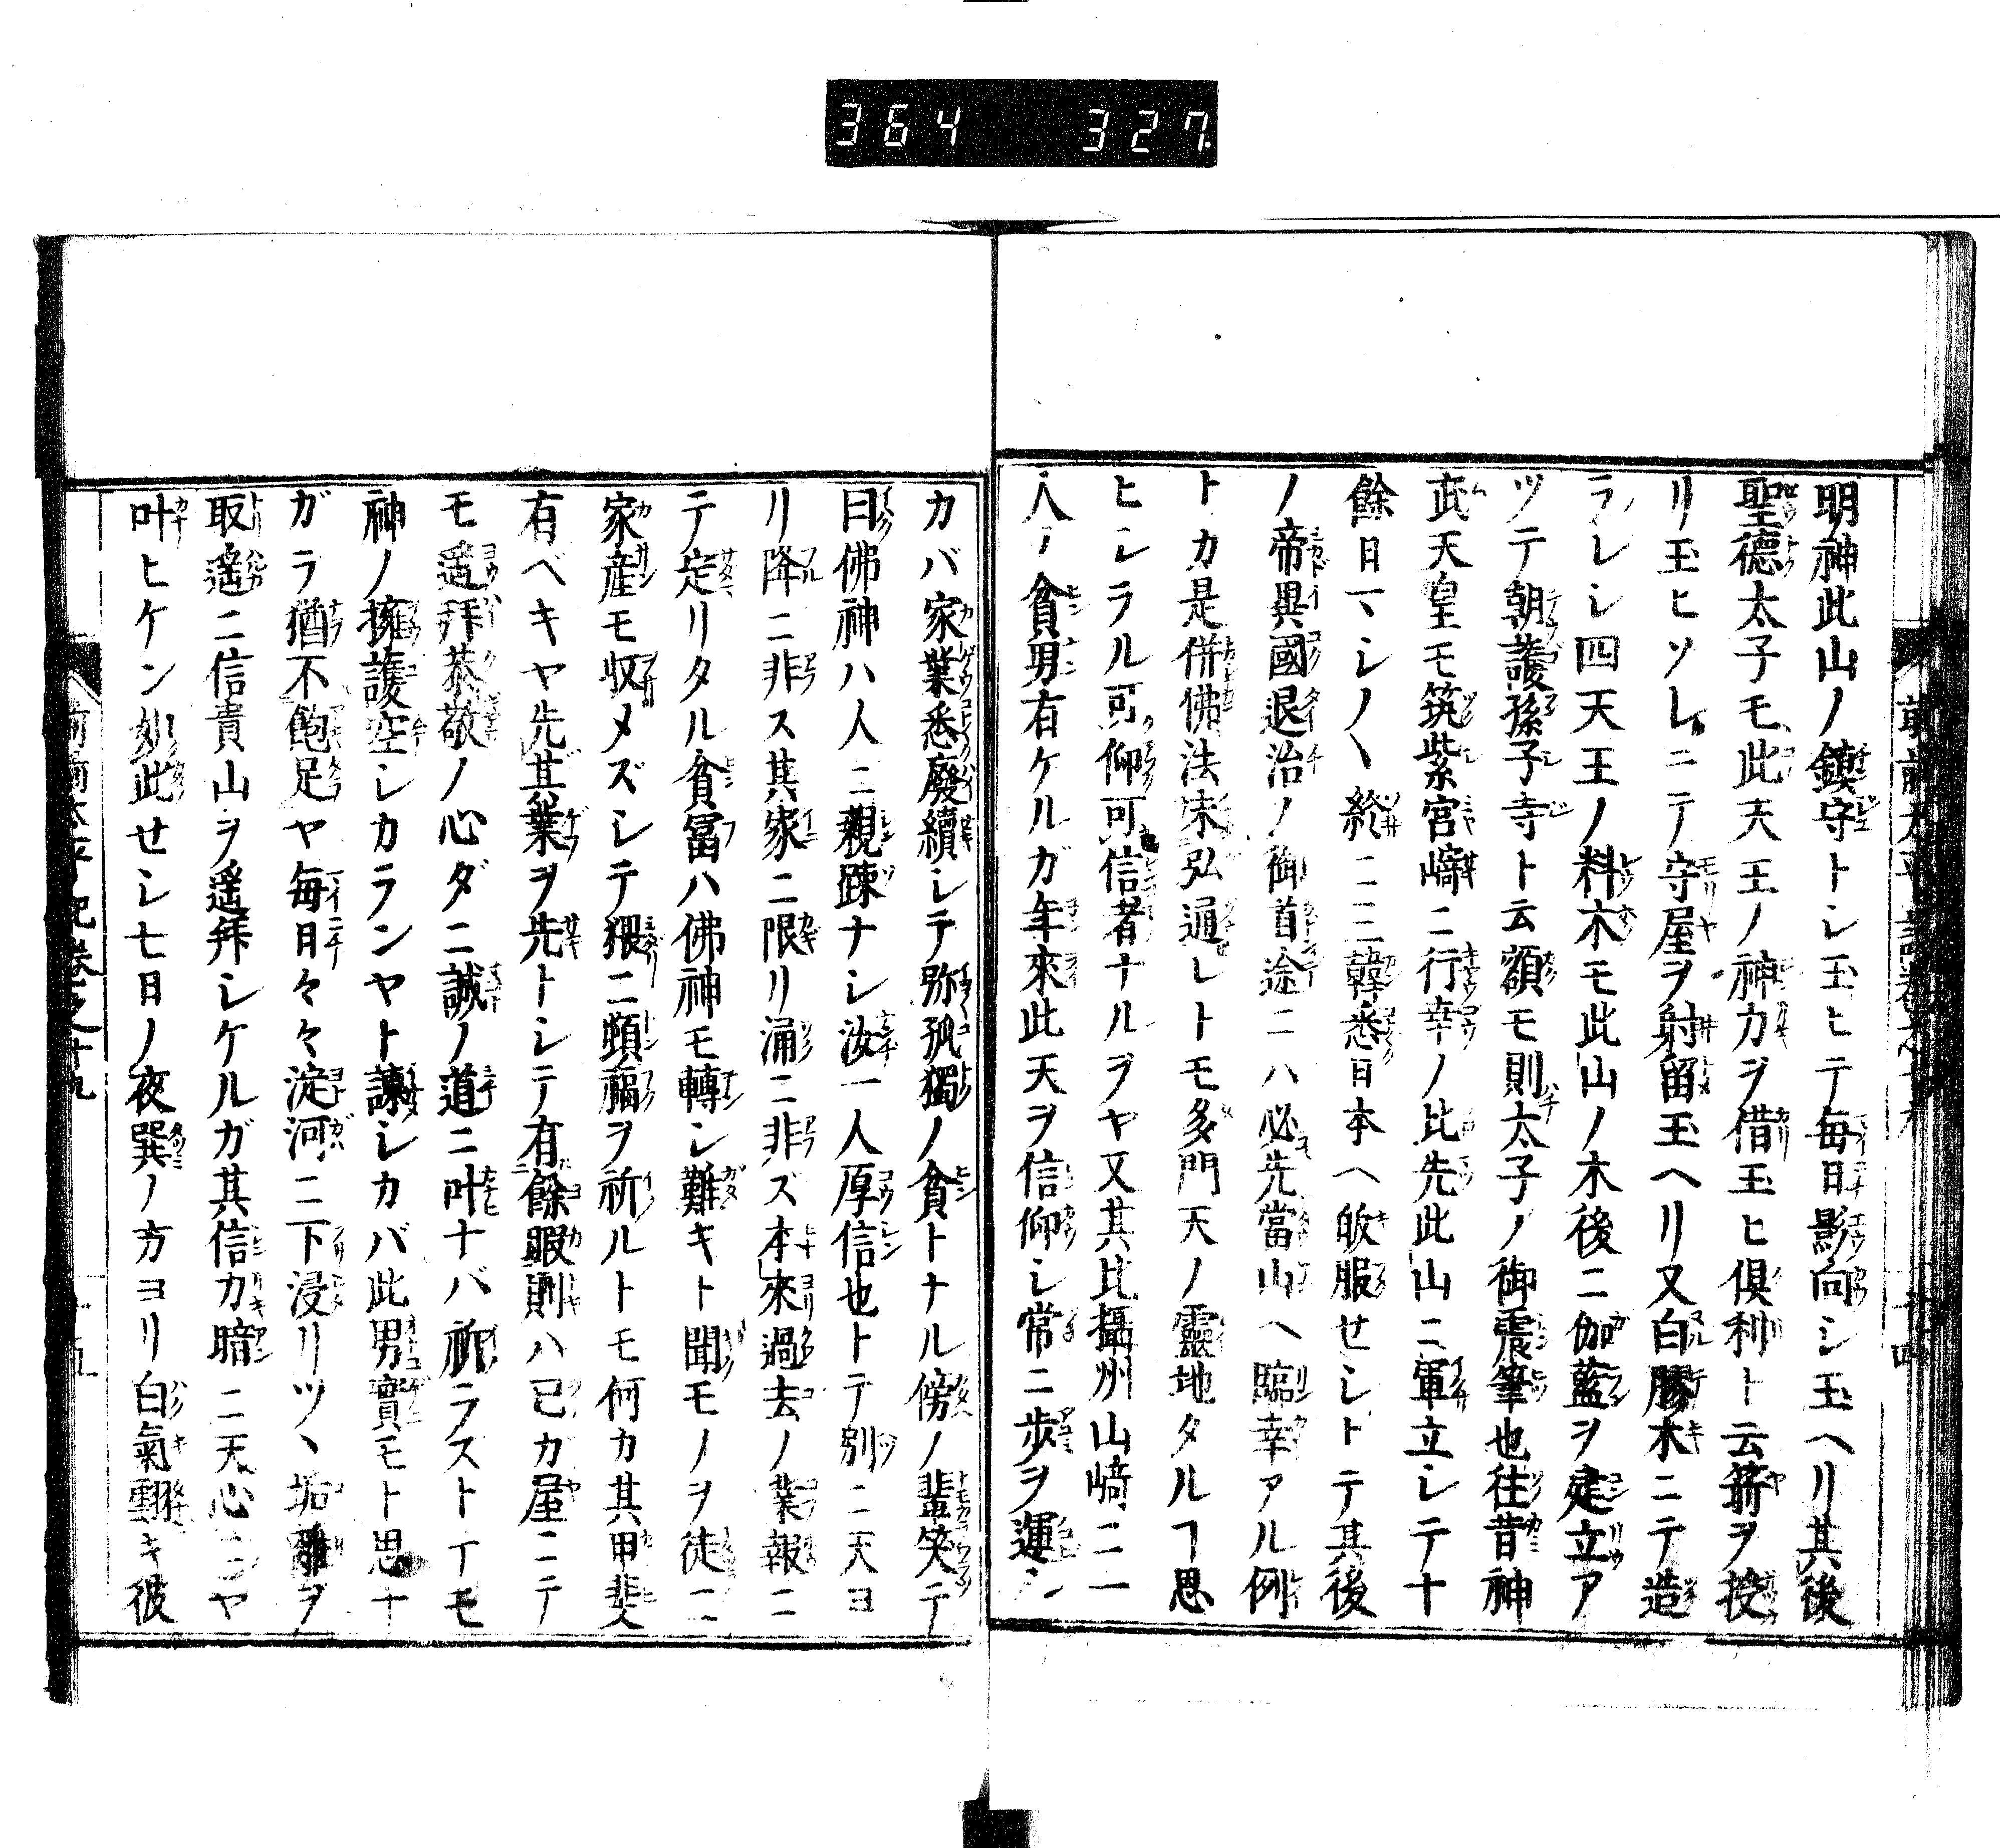 364 327
明神此山ノ鎮守トシ玉ヒテ毎日影向シ玉ヘリ其後
聖德太子モ此天王ノ神力ヲ借玉ヒ俱利ト云箭ヲ授
リ玉ヒソレニテ守屋ヲ射留玉ヘリ又白膠木ニテ造
ラレシ四天王ノ料木モ此山ノ木後ニ伽藍ヲ建立ア
ツテ朝護孫子寺ト云額モ則太子ノ御震筆也往昔神
武天皇モ筑紫宮﨑ニ行幸ノ比先此山ニ軍立シテ十
餘日マシ〳〵終ニ三韓悉日本ヘ皈服セシトテ其後
ノ帝異國退治ノ御首途ニハ必先當山ヘ臨幸アル例
トカ是併佛法未弘通レトモ多門天ノ靈地タルヿ思
ヒシラル可仰可信者ナルヲヤ又其比攝州山﨑ニ一
人ノ貧男有ケルガ年來此天ヲ信仰シ常ニ歩ヲ運シ
カバ家業悉廢續シテ弥孤獨ノ貧トナル傍ノ輩笑テ
曰佛神ハ人ニ親踈ナシ汝一人厚信也トテ別ニ天ヨ
リ降ニ非ス其家ニ限リ涌ニ非ズ本來過去ノ業報ニ
テ定リタル貧冨ハ佛神モ轉シ難キト聞モノヲ徒ニ
家産モ収メズシテ猥ニ頻福ヲ祈ルトモ何カ其甲斐
有ベキヤ先其業ヲ先トシテ有餘暇則ハ己カ屋ニテ
モ遥拜恭敬ノ心ダニ誠ノ道ニ叶ナバ祈ラストイモ
神ノ擁護空シカランヤト諫シカバ此男實モト思ナ
ガラ猶不飽足ヤ毎日々々淀河ニ下浸リツヽ垢離ヲ
取遥ニ信貴山ヲ遥拜シケルガ其信力暗ニ天心ニヤ
叶ヒケン如此セシ七日ノ夜巽ノ方ヨリ白氣飜キ彼